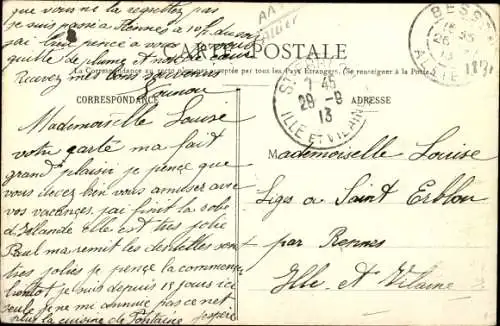 que vous ne la regrettez pas
je suis passée à Rennes à 10h du soir
j'ai bien pensé à vous
quitte de plume
Recevez mes
CARTE POSTALE
La Correspondance au recto n'est pas acceptée par tous les Pays Étrangers. (Se renseigner à la Poste.)
CORRESPONDANCE
ADRESSE
Mademoiselle Louise
votre carte ma fait
grand plaisir je pence que
vous devez bien vous amuser avec
vos vacances. j'ai finit la robe
d'Islande elle est très jolie
Paul ma remit les dentelles sont
très jolies je pence la commencer
bientot je suis depuis 15 jours ici
seule je ne m'ennuie pas ce n'est
plus la cuisine de Fontaine j'espère
7 45
29 -8
13
ILLE ET VILAINE
Mademoiselle Louise
Liges à Saint Erblon
par Rennes
Ille et Vilaine